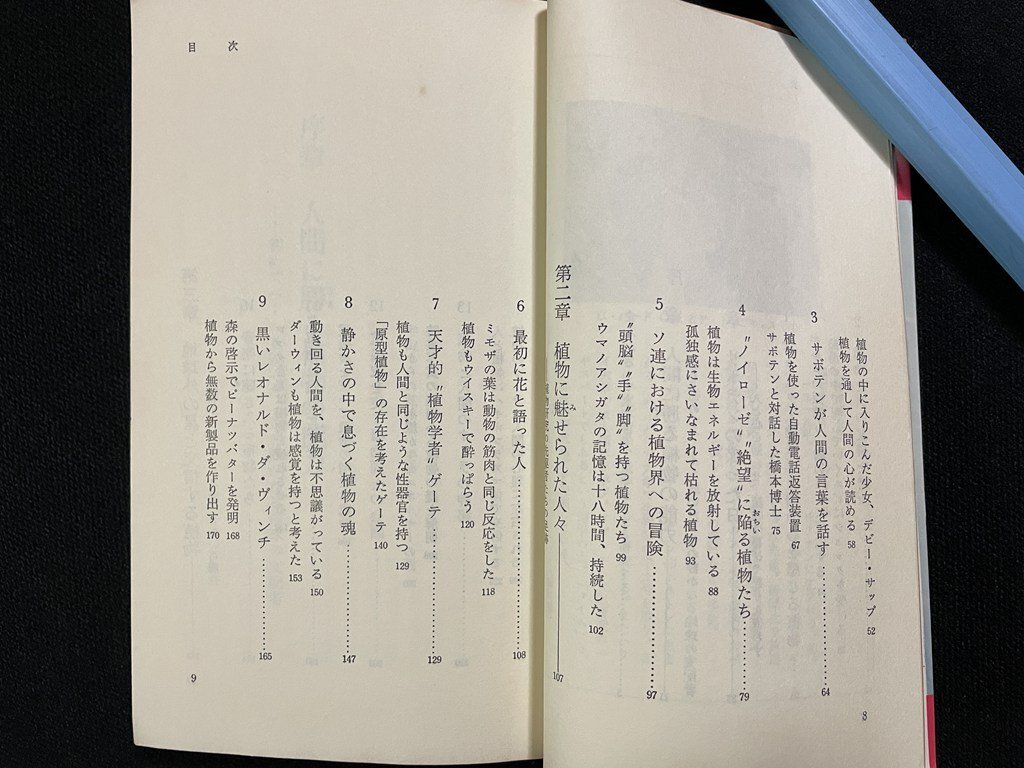 植物の中に入りこんだ少女、デビー・サップ 52
植物を通して人間の心が読める 58
3 サボテンが人間の言葉を話す…………64
植物を使った自動電話返答装置 67
サボテンと対話した橋本博士 75
4 〝ノイローゼ〟〝絶望〟に陥る植物たち…………79
おちい
植物は生物エネルギーを放射している 88
孤独感にさいなまれて枯れる植物 93
5 ソ連における植物界への冒険…………97
〝頭脳〟〝手〟〝脚〟を持つ植物たち 99
ウマノアシガタの記憶は十八時間、持続した 102
8
第二章 植物に魅せられた人々 107
み
6 最初に花と語った人…………108
ミモザの葉は動物の筋肉と同じ反応をした 118
植物もウイスキーで酔っぱらう 120
7 天才的〝植物学者〟ゲーテ…………129
植物も人間と同じような性器官を持つ 129
「原型植物」の存在を考えたゲーテ 140
8 静かさの中で息づく植物の魂…………147
動き回る人間を、植物は不思議がっている 150
ダーウィンも植物は感覚を持つと考えた 153
9 黒いレオナルド・ダ・ヴィンチ…………165
森の啓示でピーナッツバターを発明 168
植物から無数の新製品を作り出す 170
目次
9